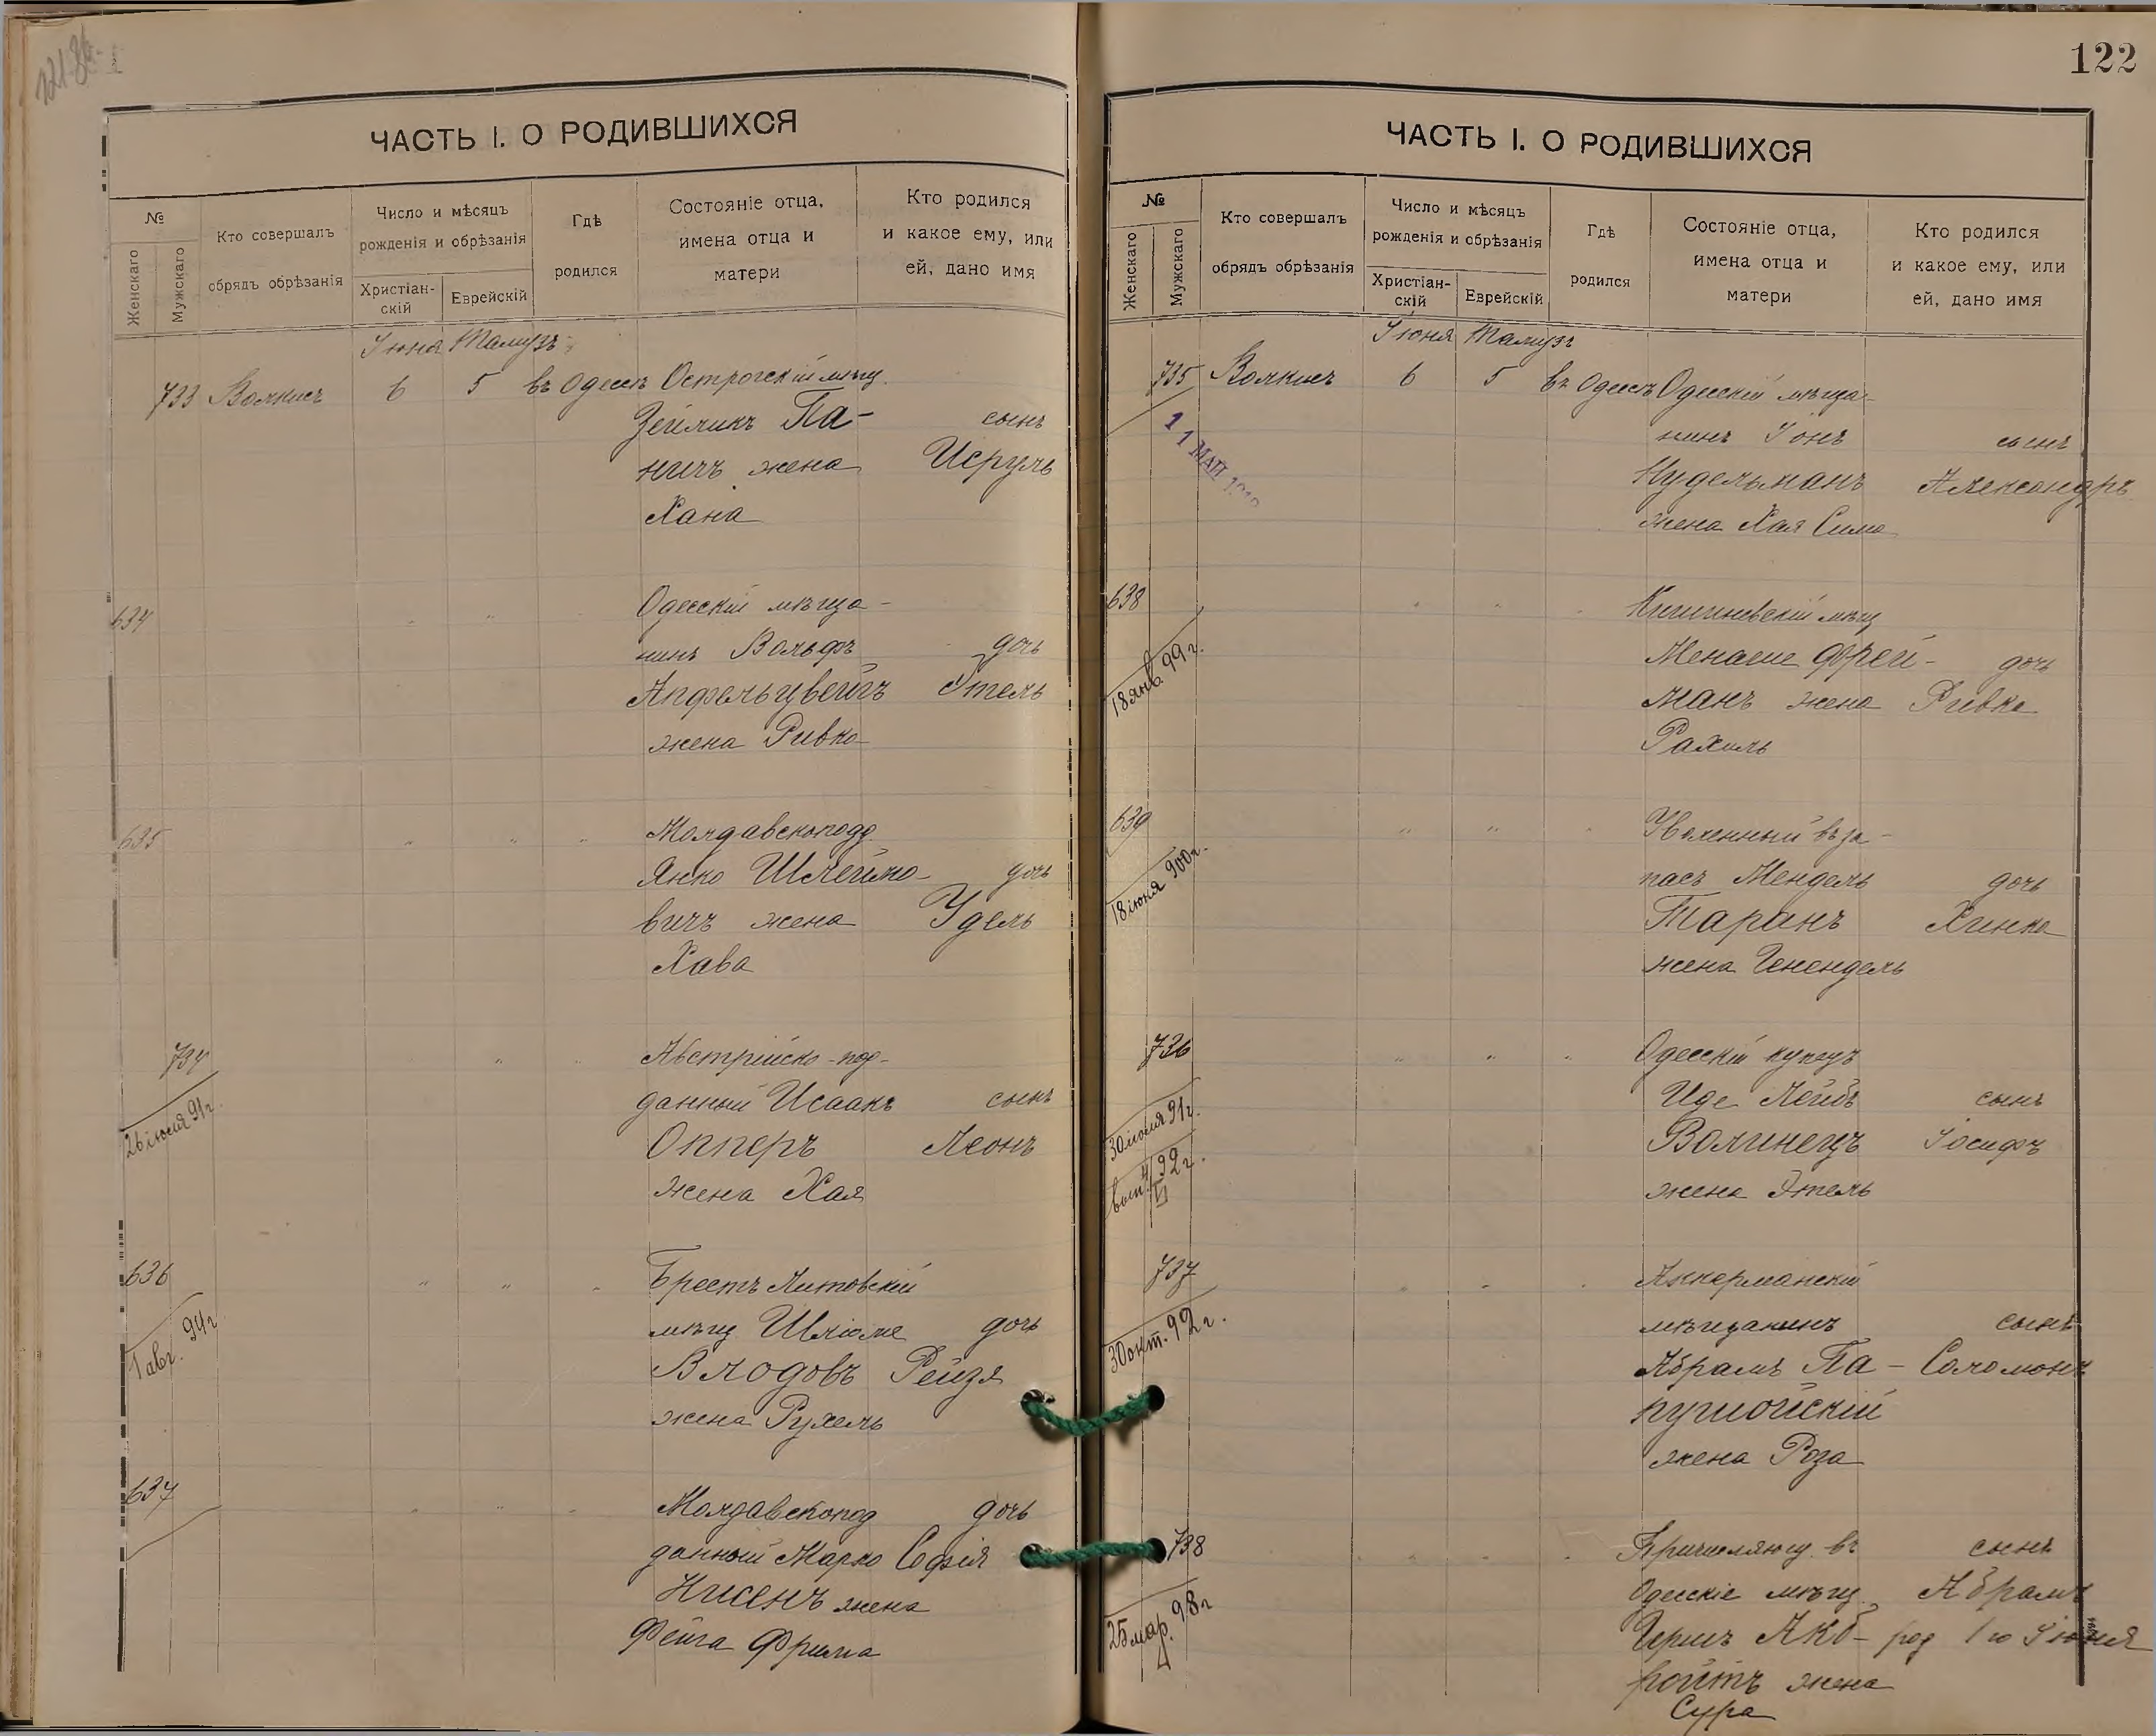 ЧАСТЬ I. О РОДИВШИХСЯ
№
Женскаго
Мужскаго
Кто совершалъ
обрядъ обрѣзанія
Число и мѣсяцъ
рожденія и обрѣзанія
Христіан-
скій
Еврейскій
Гдѣ
родился
Состояніе отца,
имена отца и
матери
Кто родился
и какое ему, или
ей, дано имя
Іюня Тамузъ
733 Волкисъ 6 5 въ Одессѣ Острогскій мѣщ.
Зейликъ Па- сынъ
ничъ жена Исруль
Хана
634 " " Одесскій мѣща-
нинъ Вольфъ дочь
Апфельцвейгъ Этель
жена Ривка
635 " " " Молдавскоподд.
Янко Шлеймо- дочь
вичъ жена Удель
Хава
734 " " " Австрійско-под-
данный Исаакъ сынъ
26 іюля 91 г.
Опперъ Леонъ
жена Хая
636 " " " Брестъ Литовскій
мѣщ Шлиоме дочь
1 авг. 94 г
Влодовъ Рейзя
жена Рухель
637 " " " Молдавскопод дочь
данный Марко Софія
Нисенъ жена
Фейга Фрима
122
ЧАСТЬ I. О РОДИВШИХСЯ
№
Женскаго
Мужскаго
Кто совершалъ
обрядъ обрѣзанія
Число и мѣсяцъ
рожденія и обрѣзанія
Христіан-
скій
Еврейскій
Гдѣ
родился
Состояніе отца,
имена отца и
матери
Кто родился
и какое ему, или
ей, дано имя
Іюня Тамузъ
735 Волкисъ 6 5 въ Одессѣ Одесскій мѣща-
11 МАЙ
нинъ Іонъ сынъ
Нудельманъ Александръ
жена Хая Сима
638 " " " Кишиневскій мѣщ
Менаше Фрей- дочь
18 янв. 99 г.
манъ жена Ривка
Рахиль
639 " " " Уволенный въ за-
пасъ Мендель дочь
18 іюня 900 г.
Таранъ Хинка
жена Генендель
736 " " " Одесскій купецъ
Иде Лейбъ сынъ
30 іюля 91 г.
Волинецъ Іосифъ
92 г.
жена Этель
737 " " " Аккерманскій
мѣщанинъ сынъ
30 окт. 92 г.
Абрамъ Па- Соломонъ
пушойскій
жена Роза
738 " " " Причисляющ. въ сынъ
Одесскіе мѣщ. Абрамъ
25 мар. 98 г
Гершъ Акб- род 1го Іюня
ройтъ жена
Сура